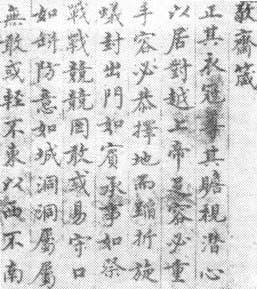 敬齋箴
正其衣冠尊其瞻視潛心
以居對越上帝足容必重
手容必恭擇地而蹈折旋
蟻封出門如賓承事如祭
戰戰兢兢罔敢或易守口
如缾防意如城洞洞屬屬
無敢或輕不東以西不南